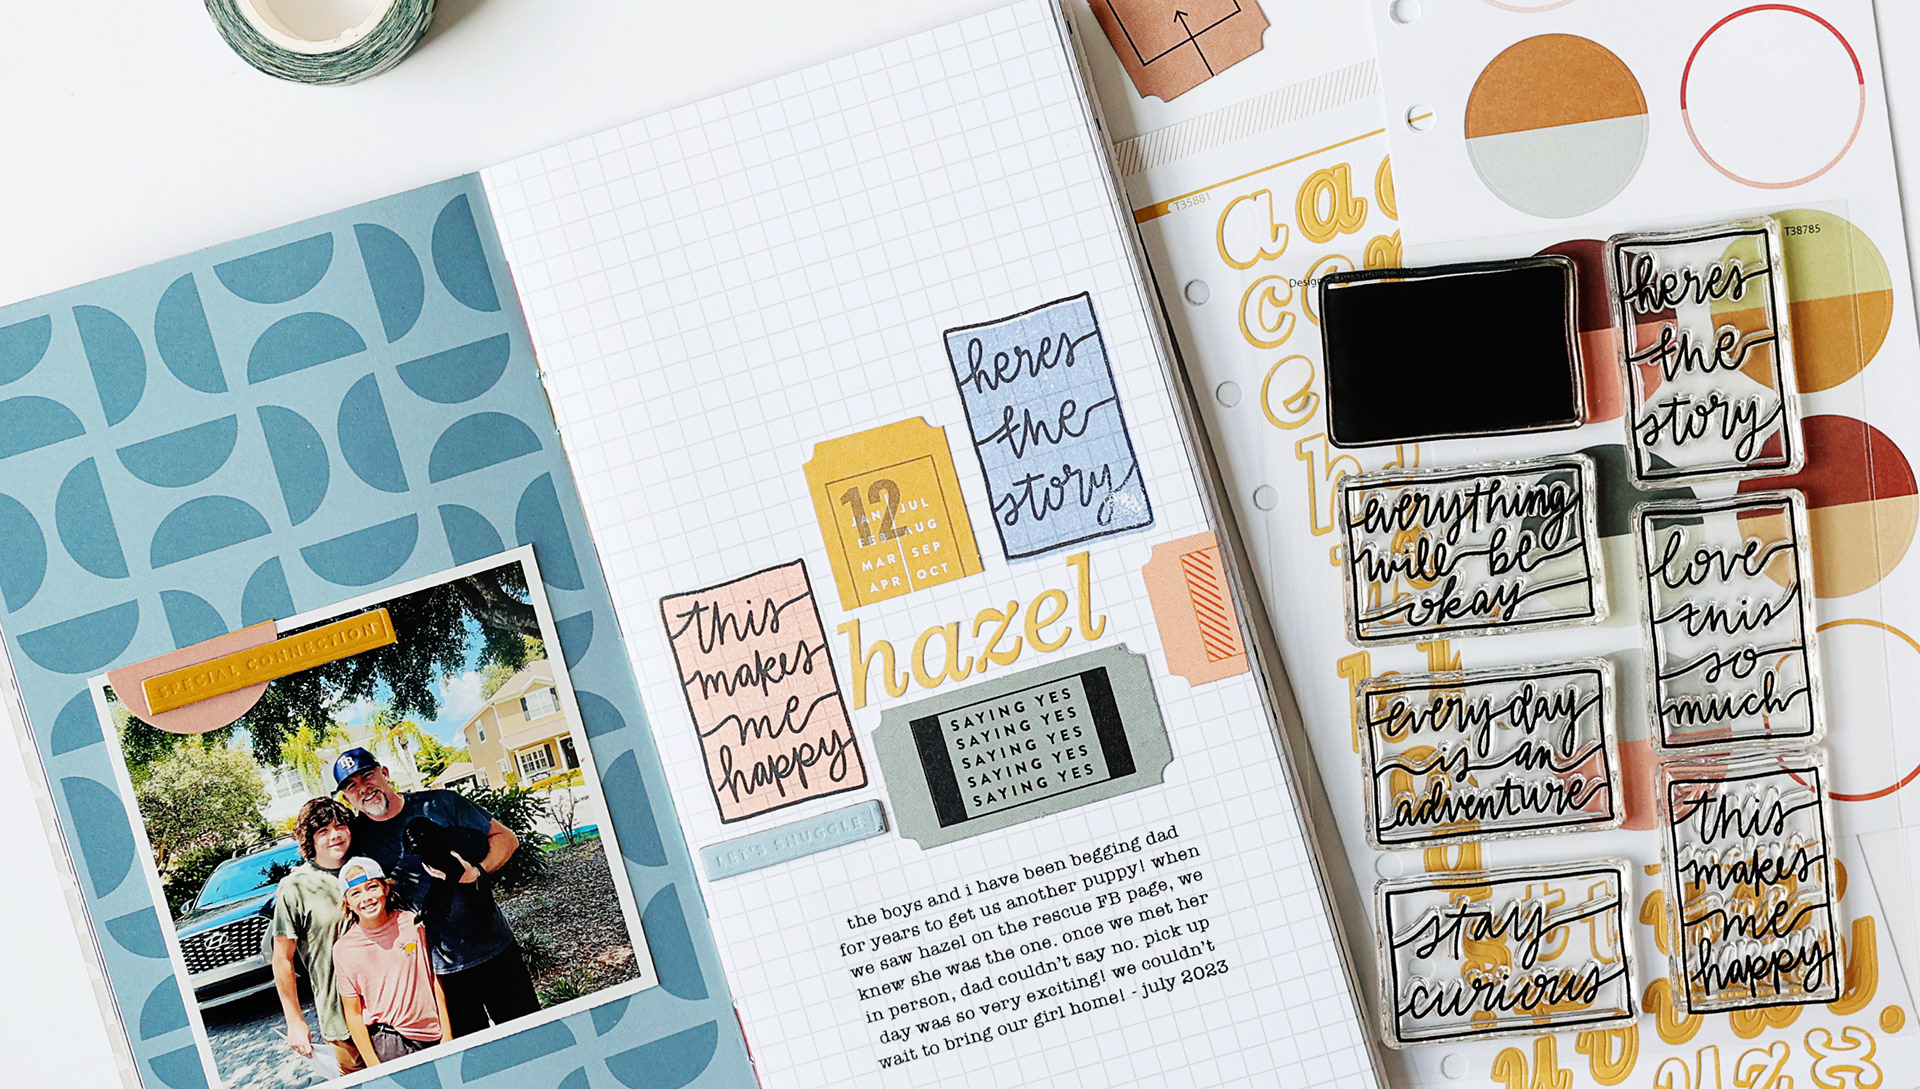 SPECIAL CONNECTION
TB
heres
the
story
12
JAN JUL
FEB AUG
MAR SEP
APR OCT
this
makes
me
happy
hazel
SAYING YES
SAYING YES
SAYING YES
SAYING YES
SAYING YES
LET'S SNUGGLE
the boys and i have been begging dad
for years to get us another puppy! when
we saw hazel on the rescue FB page, we
knew she was the one. once we met her
in person, dad couldn't say no. pick up
day was so very exciting! we couldn't
wait to bring our girl home! - july 2023
T35881
a a
T38785
heres
the
story
everything
will be
okay
love
this
so
much
every day
is an
adventure
this
makes
me
happy
stay
curious